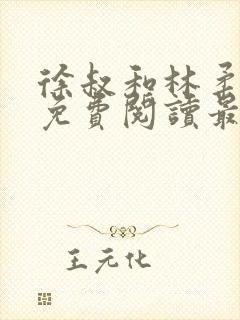 徐叔和林柔
免費閱讀最
王元化